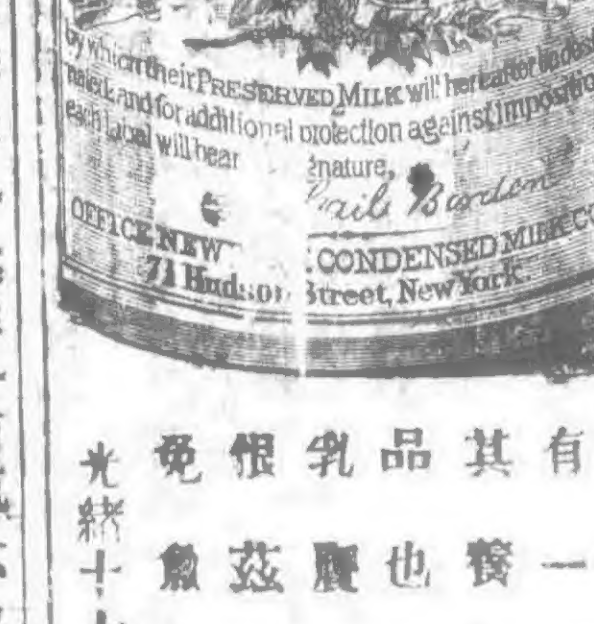 by which their PRESERVED MILK will hereafter be
and for additional protection against imposition
each label will bear nature,
Gail Borden
OFFICE NEW CONDENSED MILK CO
71 Hudson Street, New York.
有一
其餐
品也
乳
恨茲
免
光緒十